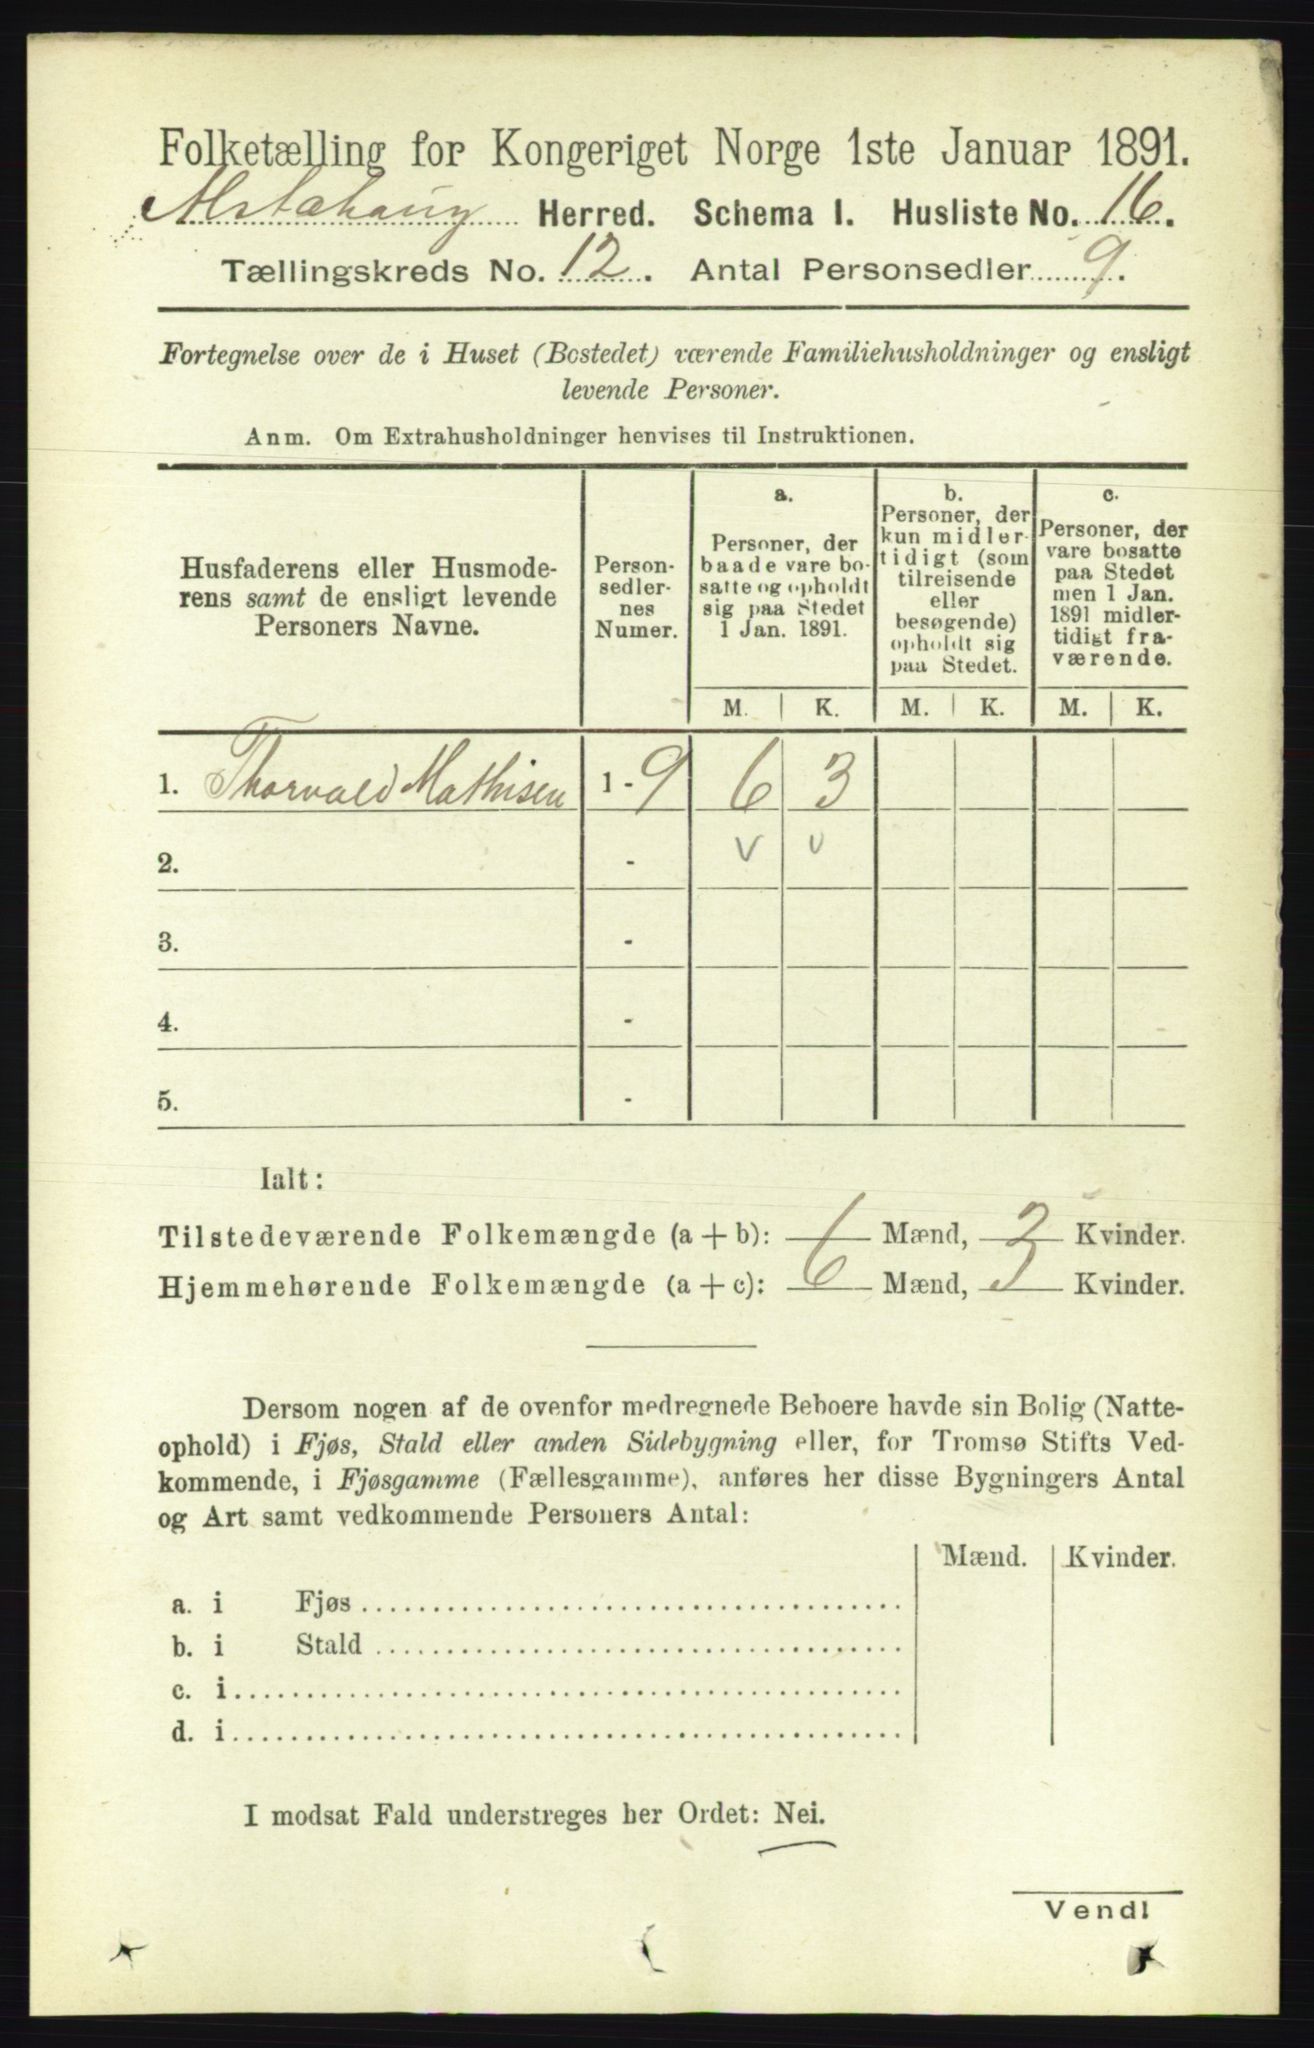 Folketælling for Kongeriget Norge 1ste Januar 1891.
Alstahaug Herred. Schema I. Husliste No. 16.
Tællingskreds No. 12. Antal Personsedler 9.
Fortegnelse over de i Huset (Bostedet) værende Familiehusholdninger og ensligt
levende Personer.
Anm. Om Extrahusholdninger henvises til Instruktionen.
Husfaderens eller Husmode-
rens samt de ensligt levende
Personers Navne.
Person-
sedler-
nes
Numer.
a.
Personer, der
baade vare bo-
satte og opholdt
sig paa Stedet
1 Jan. 1891.
b.
Personer, der
kun midler-
tidigt (som
tilreisende
eller
besøgende)
opholdt sig
paa Stedet.
c.
Personer, der
vare bosatte
paa Stedet
men 1 Jan.
1891 midler-
tidigt fra-
værende.
M. K. M. K. M. K.
1. Thorvald Mathisen 1 - 9 6 3
2. - v v
3. -
4. -
5. -
Ialt:
Tilstedeværende Folkemængde (a + b): 6 Mænd, 3 Kvinder.
Hjemmehørende Folkemængde (a + c): 6 Mænd, 3 Kvinder.
Dersom nogen af de ovenfor medregnede Beboere havde sin Bolig (Natte-
ophold) i Fjøs, Stald eller anden Sidebygning eller, for Tromsø Stifts Ved-
kommende, i Fjøsgamme (Fællesgamme), anføres her disse Bygningers Antal
og Art samt vedkommende Personers Antal:
Mænd. Kvinder.
a. i Fjøs
b. i Stald
c. i
d. i
I modsat Fald understreges her Ordet: Nei.
Vend!